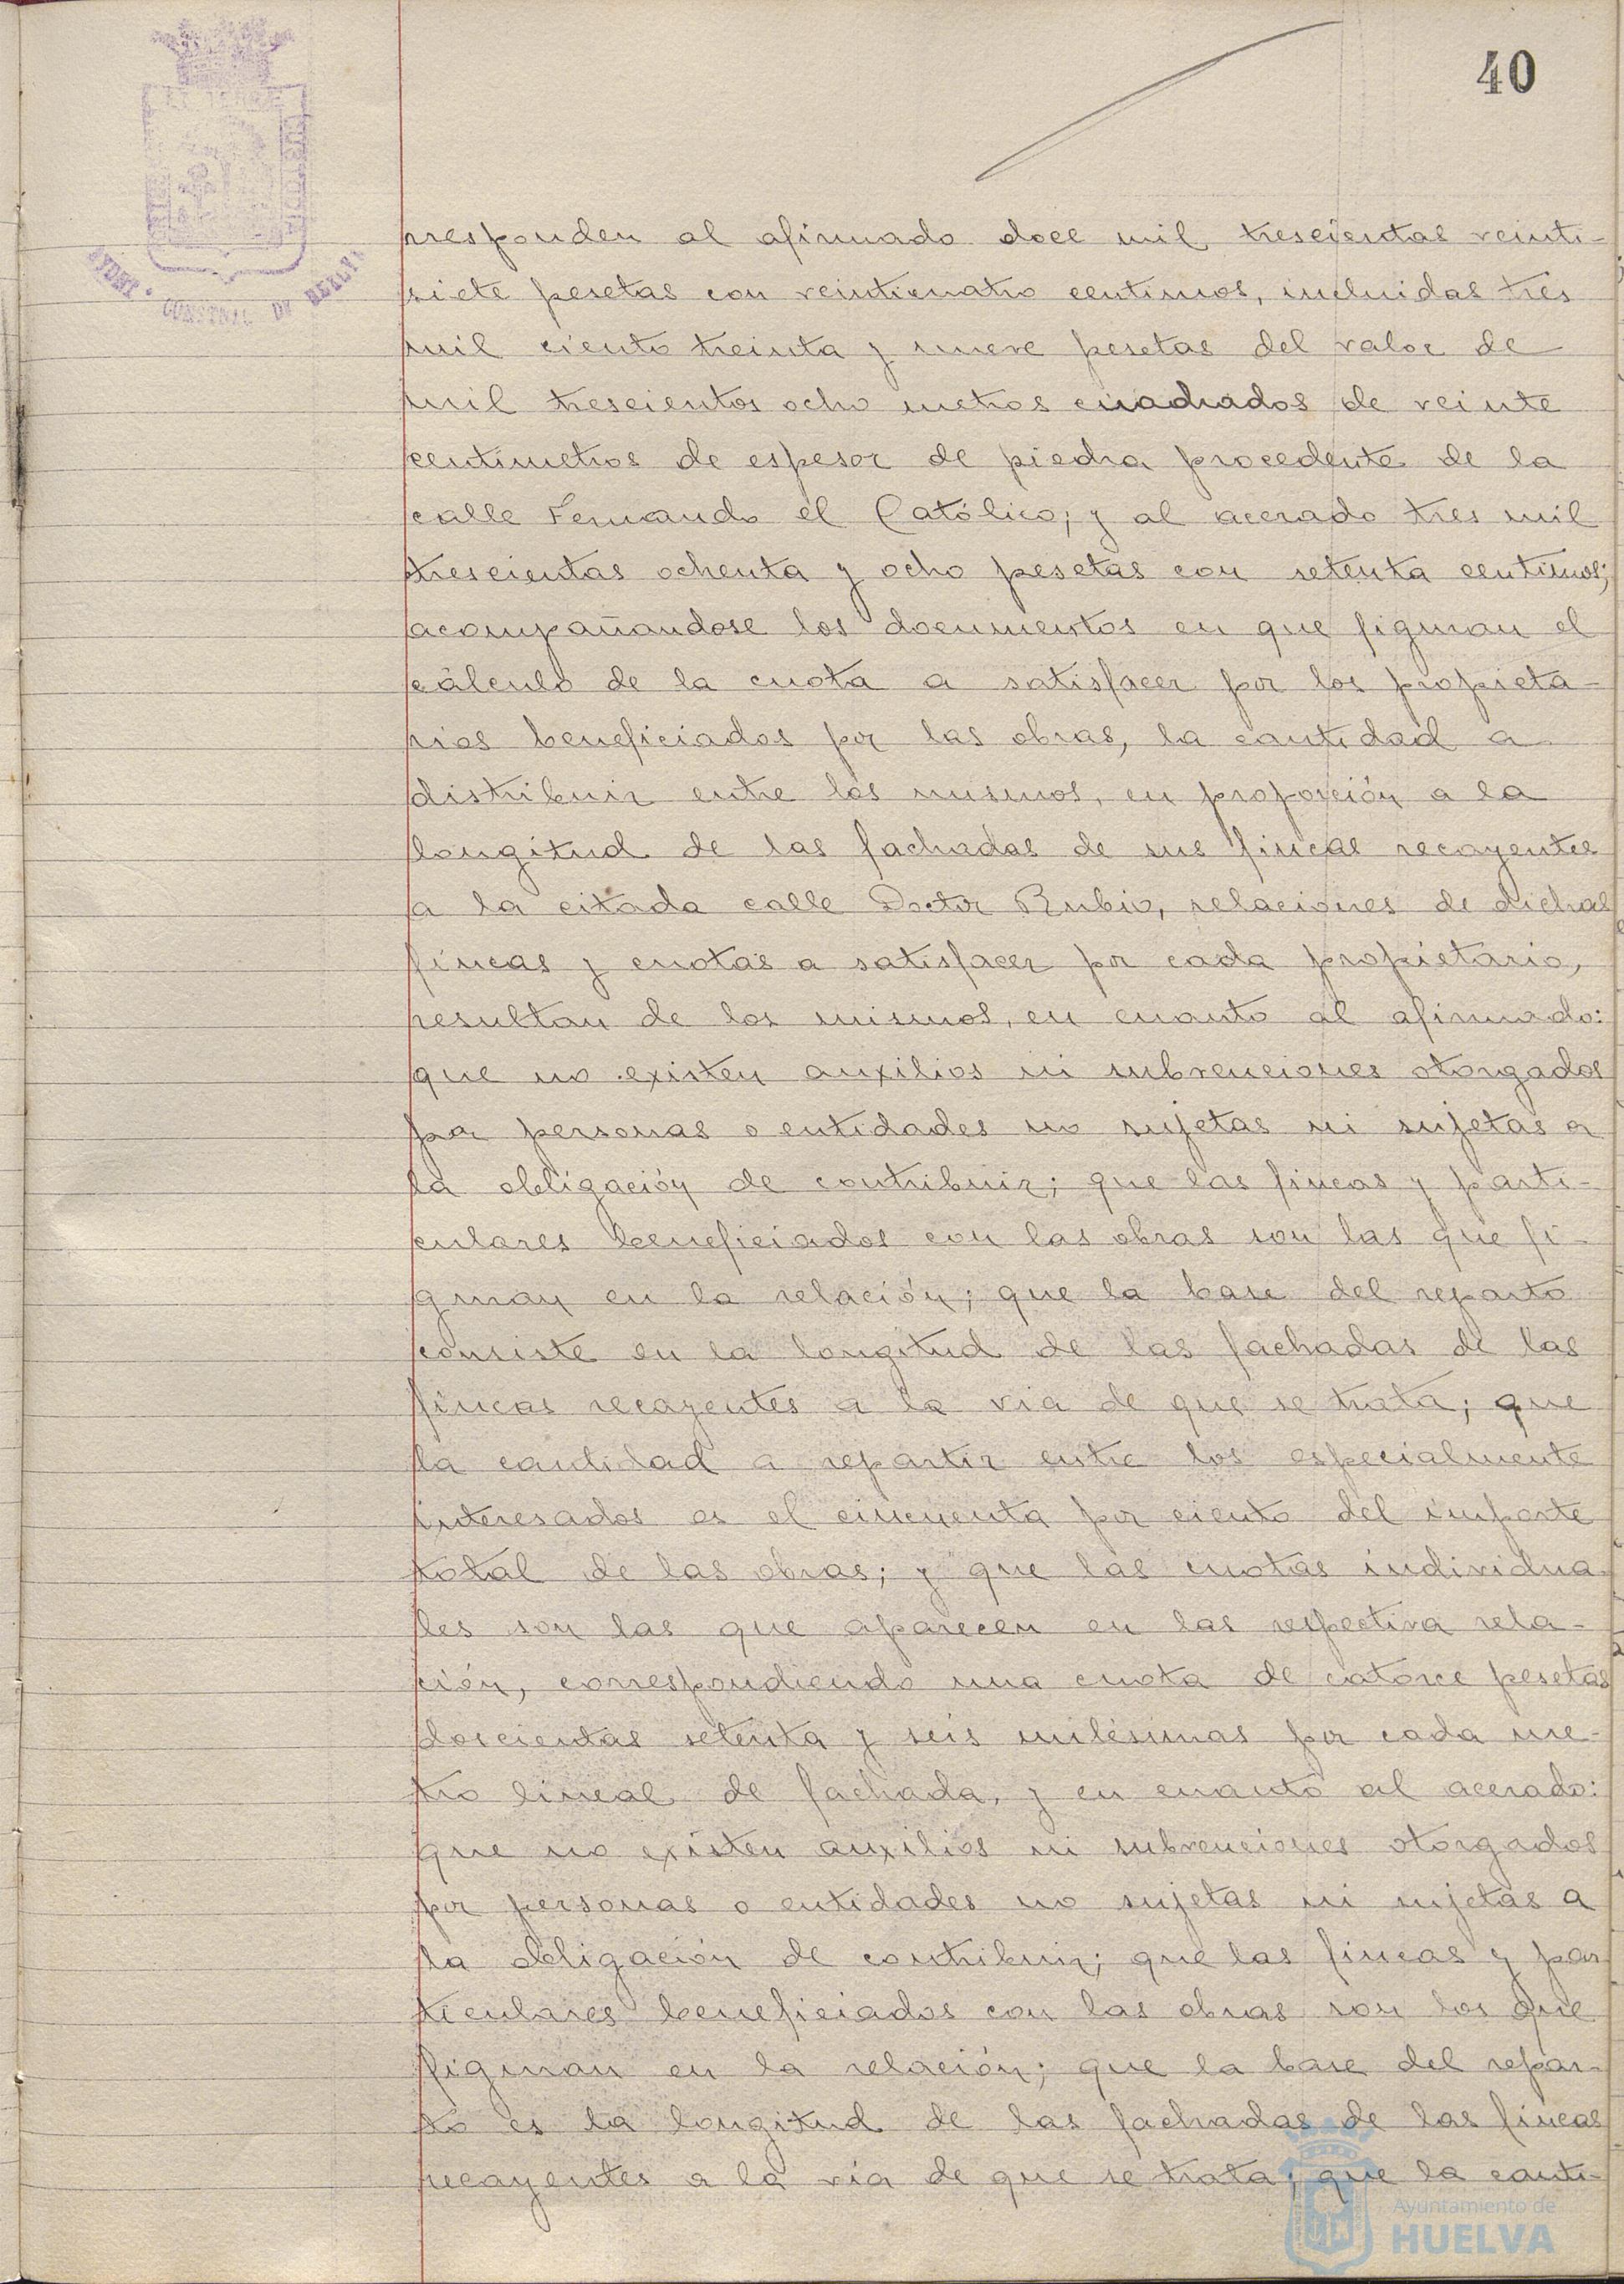 40
AYUNT. CONSTNAL DE HUELVA
rresponden al afirmado doce mil trescientas veinti-
siete pesetas con veinticuatro centimos, incluidas tres
mil ciento treinta y nueve pesetas del valor de
mil trescientos ocho metros cuadrados de veinte
centimetros de espesor de piedra procedente de la
calle Fernando el Católico; y al acerado tres mil
trescientas ochenta y ocho pesetas con setenta centimos;
acompañandose los documentos en que figuran el
cálculo de la cuota a satisfacer por los propieta-
rios beneficiados por las obras, la cantidad a
distribuir entre los mismos, en proporción a la
longitud de las fachadas de sus fincas recayentes
a la citada calle Doctor Rubio, relaciones de dichas
fincas y cuotas a satisfacer por cada propietario,
resultan de los mismos, en cuanto al afirmado:
que no existen auxilios ni subvenciones otorgados
por personas o entidades no sujetas ni sujetas a
la obligación de contribuir; que las fincas y parti-
culares beneficiados con las obras son las que fi-
guran en la relación; que la base del reparto
consiste en la longitud de las fachadas de las
fincas recayentes a la via de que se trata; que
la cantidad a repartir entre los especialmente
interesados es el cincuenta por ciento del importe
total de las obras; y que las cuotas individua-
les son las que aparecen en las respectiva rela-
ción, correspondiendo una cuota de catorce pesetas
doscientas setenta y seis milésimas por cada me-
tro lineal de fachada, y en cuanto al acerado:
que no existen auxilios ni subvenciones otorgados
por personas o entidades no sujetas ni sujetas a
la obligación de contribuir; que las fincas y par
ticulares beneficiados con las obras son los que
figuran en la relación; que la base del repar-
to es la longitud de las fachadas de las fincas
recayentes a la vía de que se trata; que la canti-
Ayuntamiento de
HUELVA